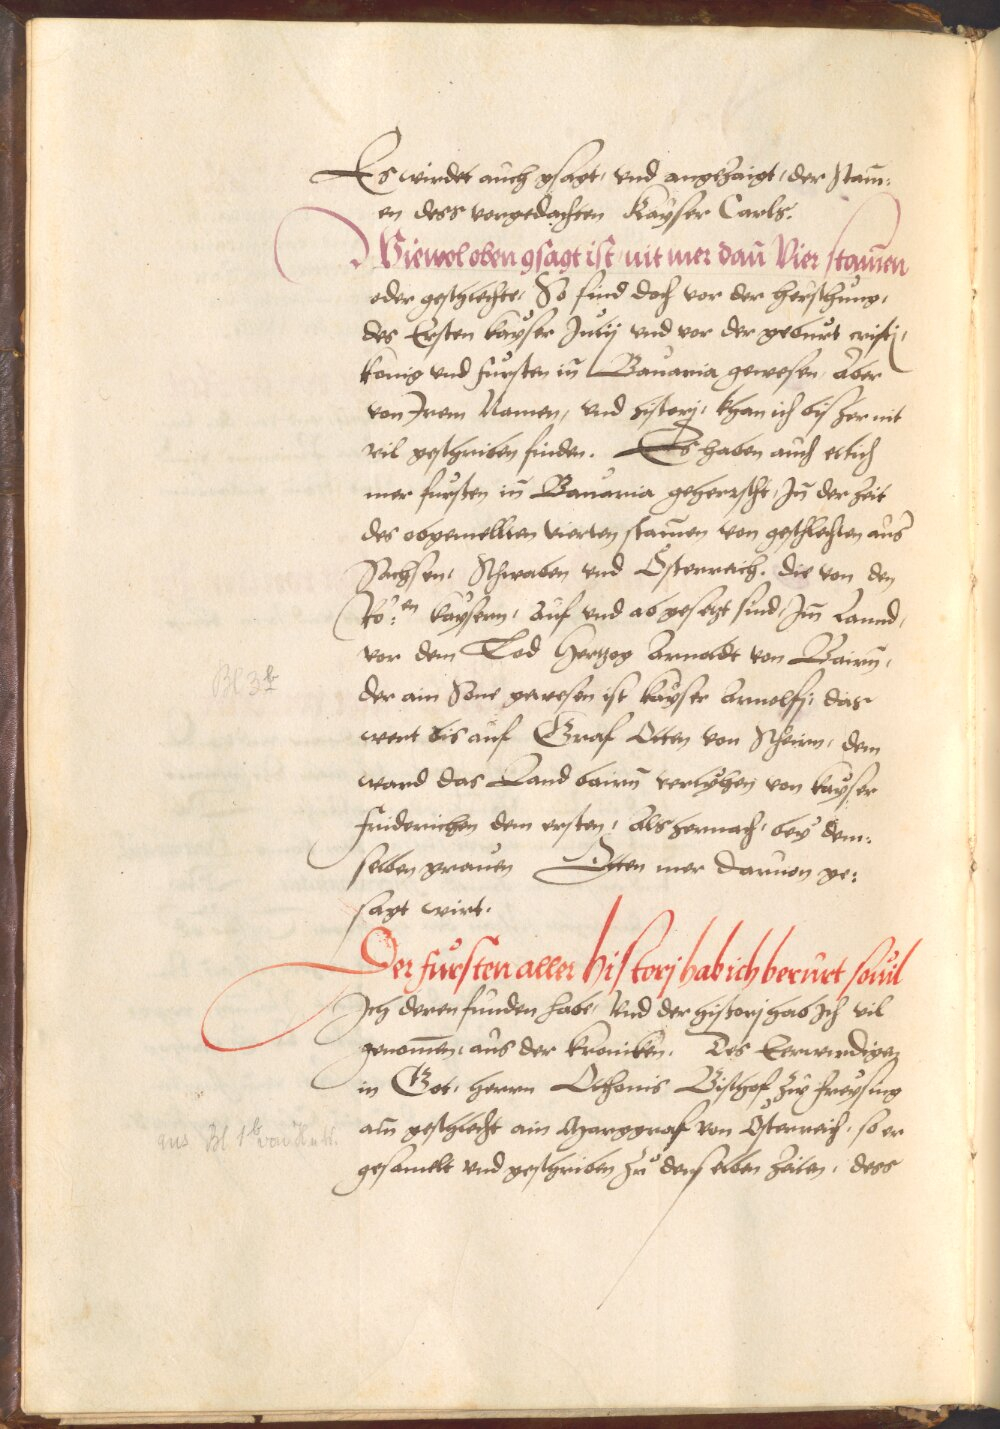 Es wirdet auch gsagt, vnd angezaigt, der stam̄:
en dess vorgedachten Kayser Carls.
Wiewol oben gsagt ist nit mer dan̄ Vier stam̄en
oder geschlechte, So sind doch vor der hersthung,
des Ersten kayser Julij vnd vor der geburt cristj,
konig vnd fursten in̄ Bauaria gewesen, Aber
von Irem Namen, vnd histori, khan ich bisher nit
vil geschriben finden. Es haben auch etlich
mer fursten in̄ Bauaria geherrscht, In̄ der zeit
des obgemelten vierten stam̄en von geschlechten aus
Sachsen, Schwaben vnd Osterreich. die von den
Ro:en kaysern, Auf vnd abgesetzt sind, Im̄ Lannd,
vor dem Tod Hertzog Arnoldt von Bairn̄,
der ain Sone gewesen ist kayser Arnolffs, das
wert bis auf Graf Otten von Scheirn, dem
ward das Land bairn̄ verlyhen von kayser
friderichen dem ersten, Als hernach, bey dem:
selben grauen Otten mer daruon ge:
sagt wirt.
Der fursten aller historj hab ich berurt souil
Ich deren funden habe, Vnd der historj hab Ich vil
genom̄en, aus der kroniken. Des Eerwirdigen
in Got, herrn Othonis Bischof zu freysing
ain geschlecht ain Marggraf von Osterreich, so er
gesamelt vnd geschriben zu denselben zeiten, dess
Bl 3b
aus Bl 1b